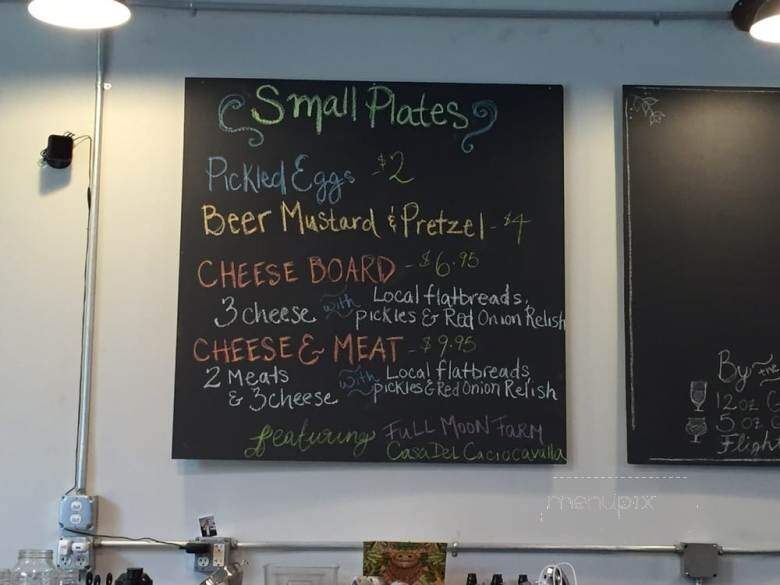 Small Plates
Pickled Eggs - $2
Beer Mustard & Pretzel - $4
CHEESE BOARD - $6.95
3 cheese with Local flatbreads,
pickles & Red Onion Relish
CHEESE & MEAT - $9.95
2 Meats with Local flatbreads
& 3 cheese pickles & Red Onion Relish
featuring FULL MOON FARM
Casa Del Caciocavalla
By the
12 oz
5 oz
Flight
menupix